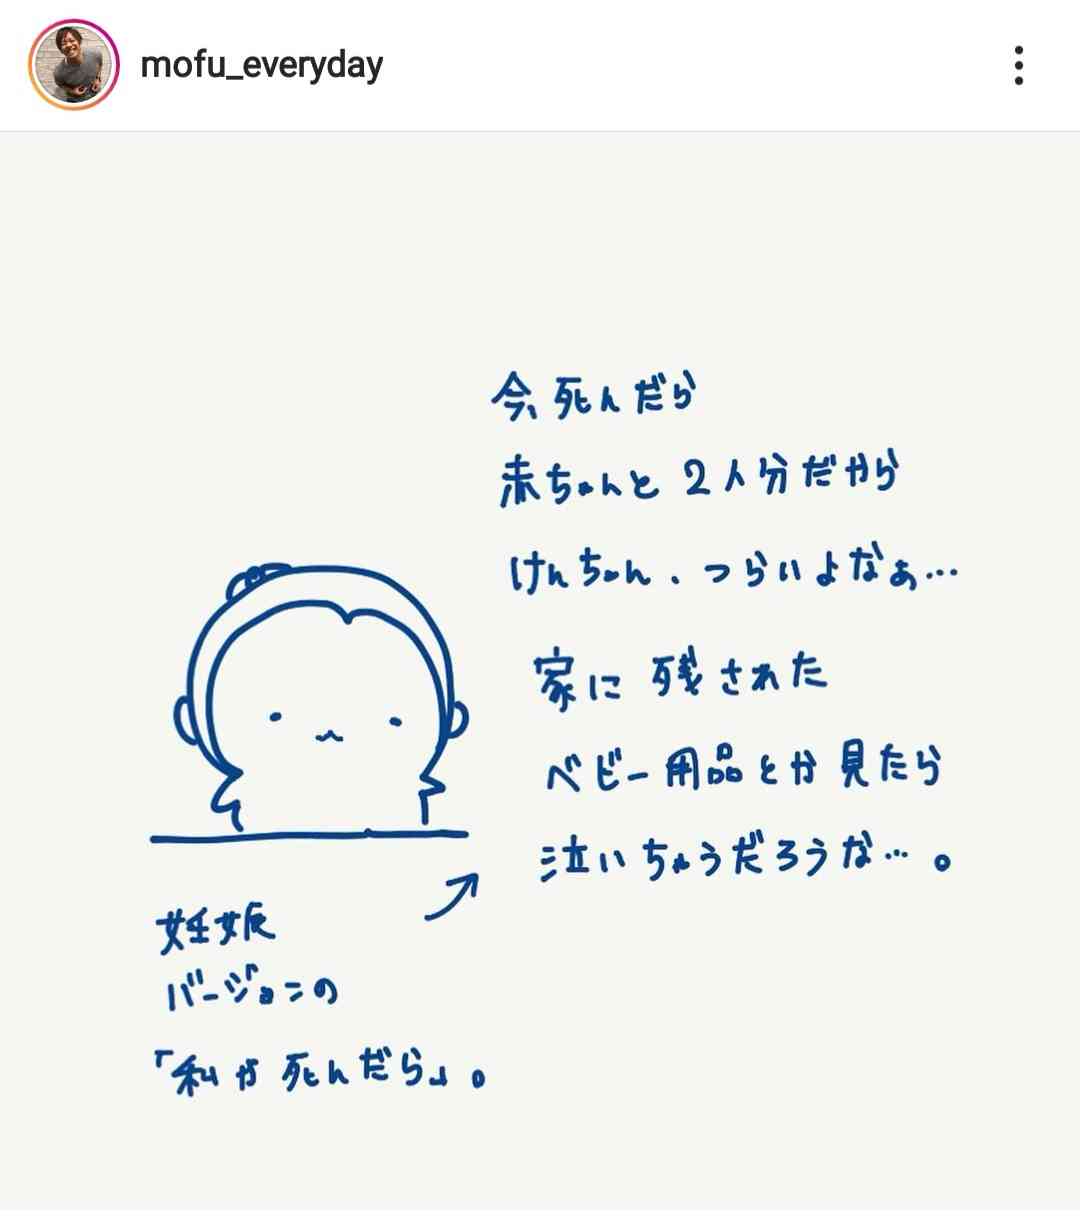 mofu_everyday
今、死んだら
赤ちゃんと2人分だから
けんちゃん、つらいよなぁ…
家に残された
ベビー用品とか見たら
泣いちゃうだろうな…。
妊娠
バージョンの
「私が死んだら」。